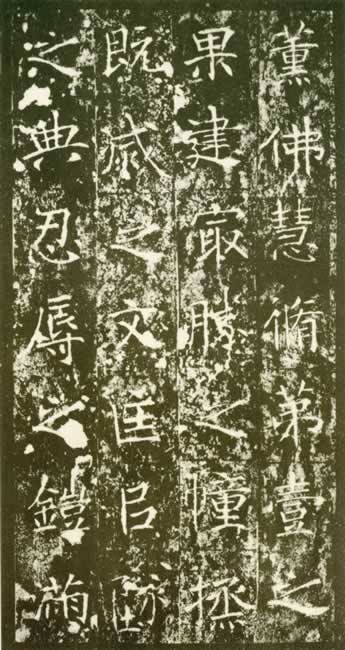 薰佛慧脩弟壹之
果建冣勝之幢拯
既烕之文匡已墜
之典忍辱之鎧